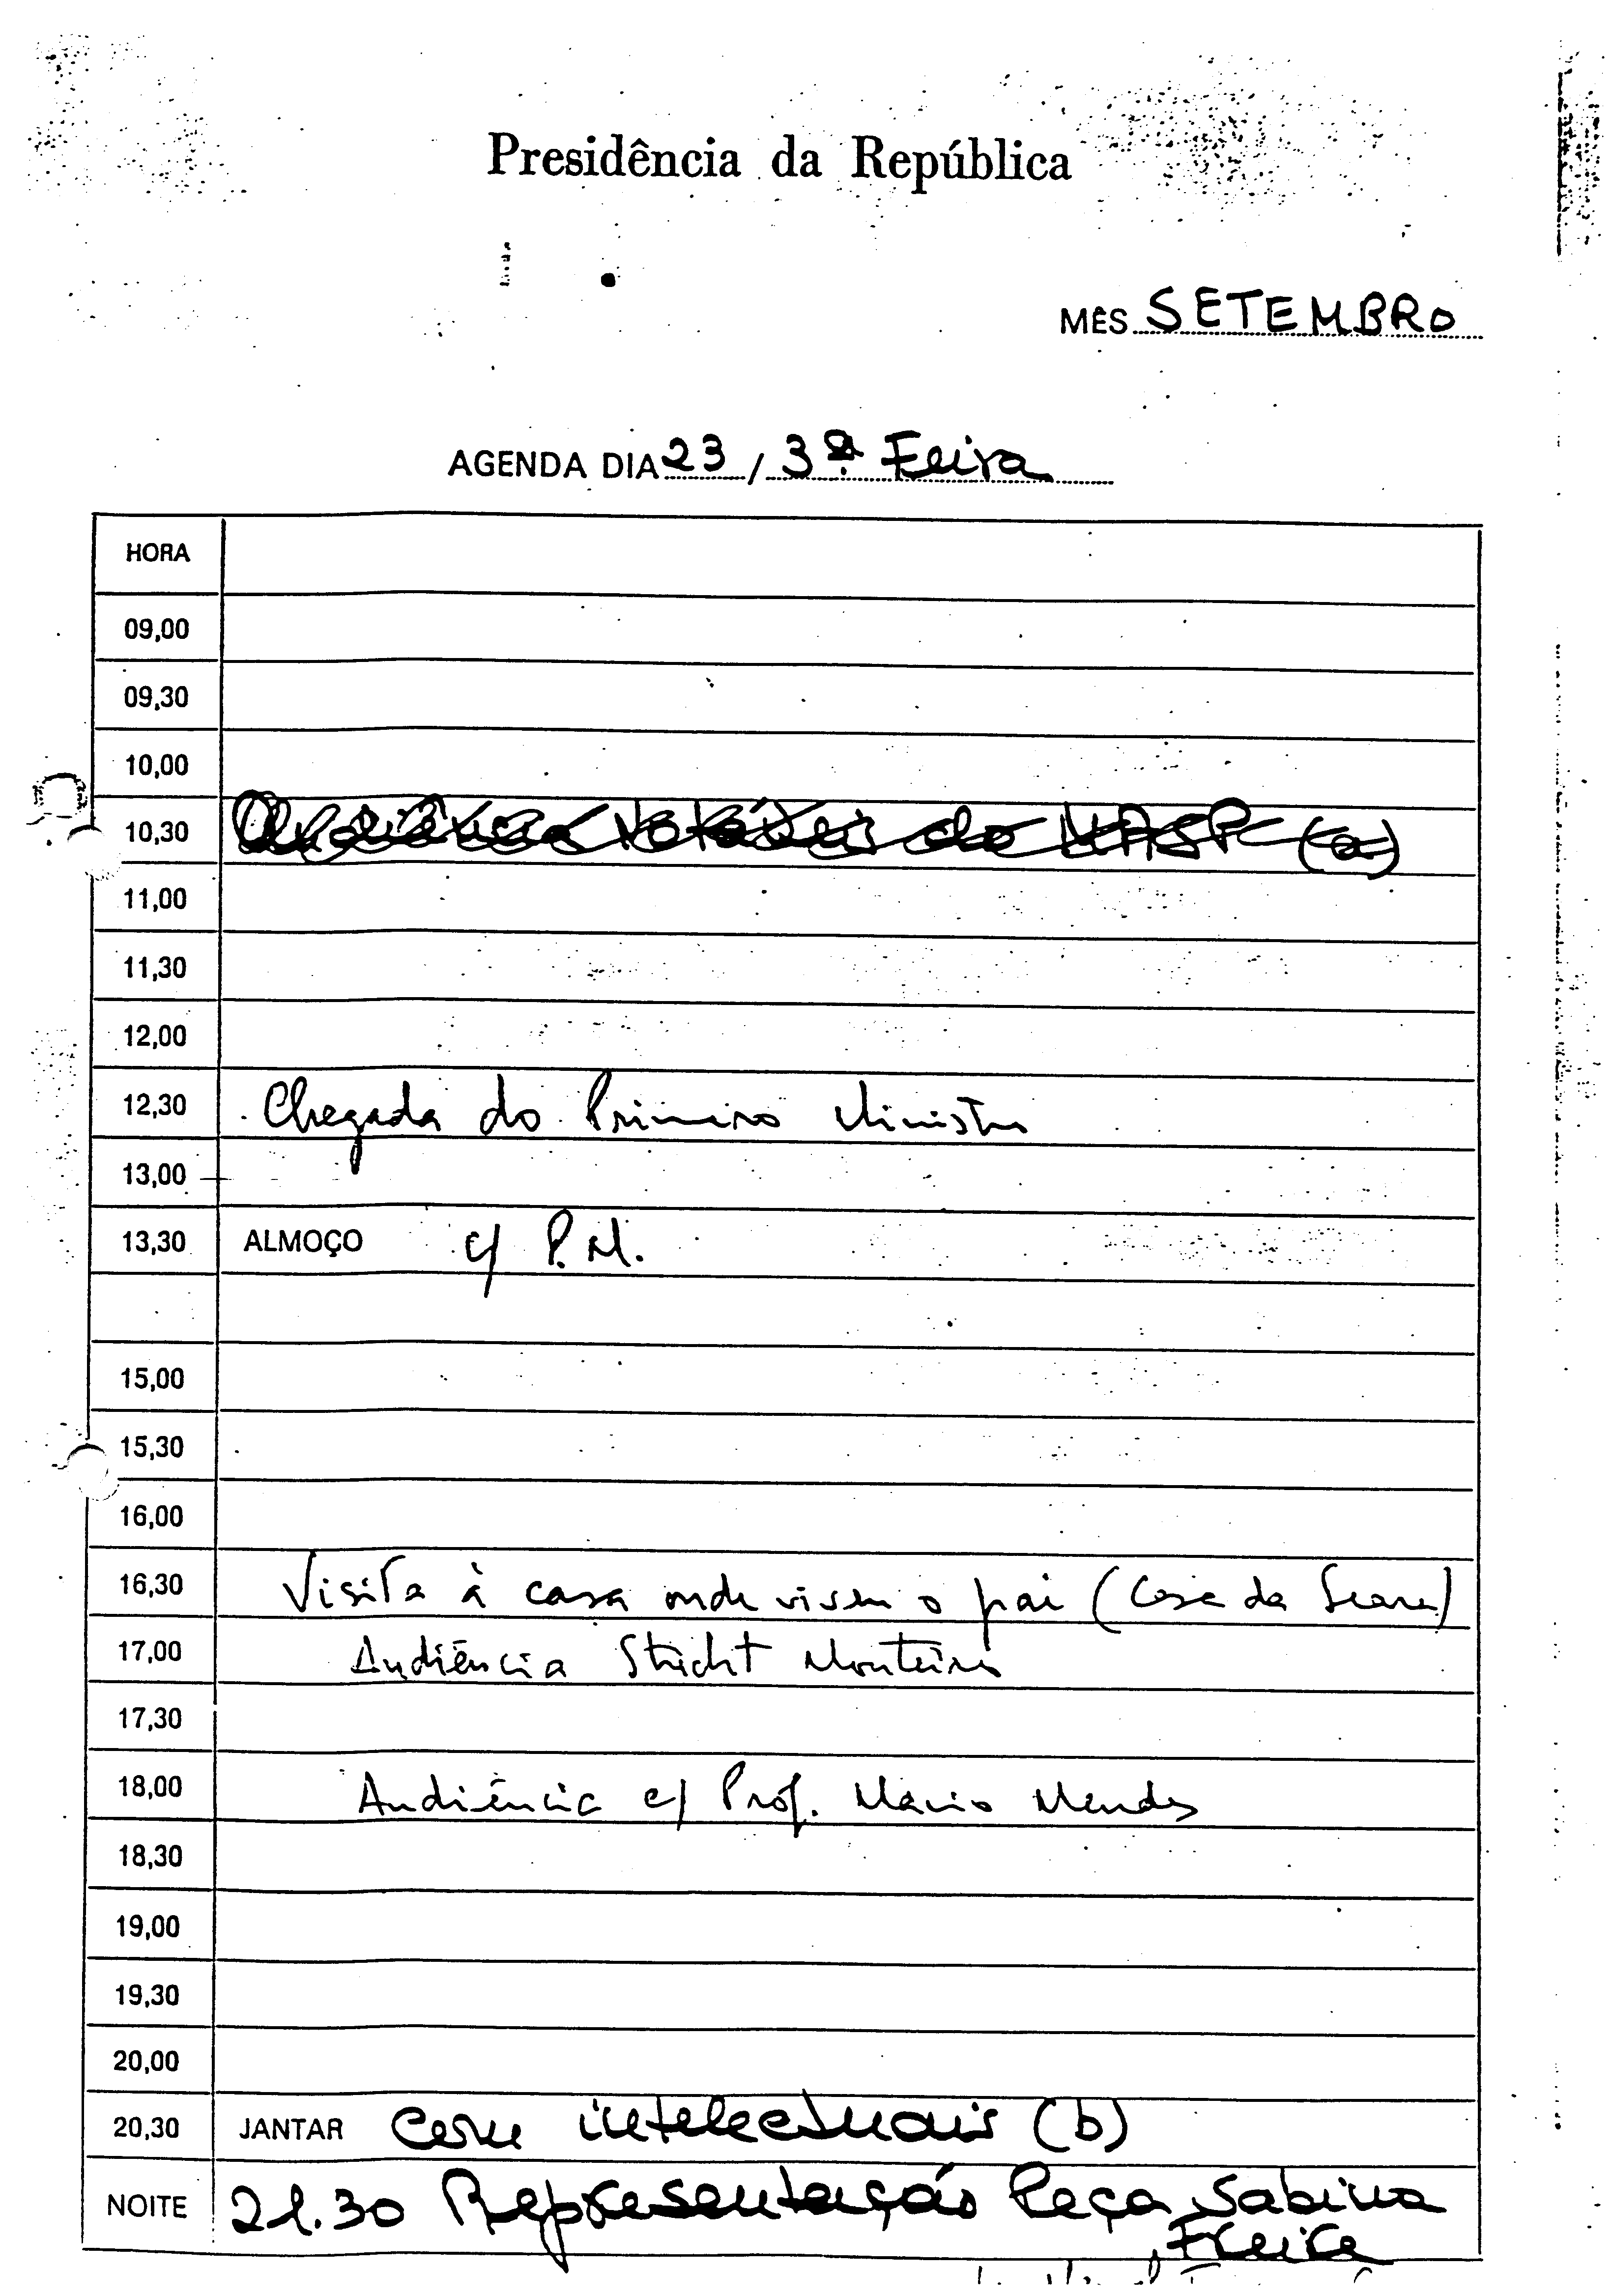 Presidência da República
MÊS SETEMBRO
AGENDA DIA 23 / 3ª Feira
HORA
09,00
09,30
10,00
10,30 Audiência Notáveis do MASP (a)
11,00
11,30
12,00
12,30 Chegada do Primeiro Ministro
13,00
13,30 ALMOÇO c/ P.M.
15,00
15,30
16,00
16,30 Visita à casa onde viveu o pai (Casa da Seara)
17,00 Audiência Stricht Monteiro
17,30
18,00 Audiência c/ Prof. Mário Mendes
18,30
19,00
19,30
20,00
20,30 JANTAR Com intelectuais (b)
NOITE 21.30 Representação Peça Sabina
Freire